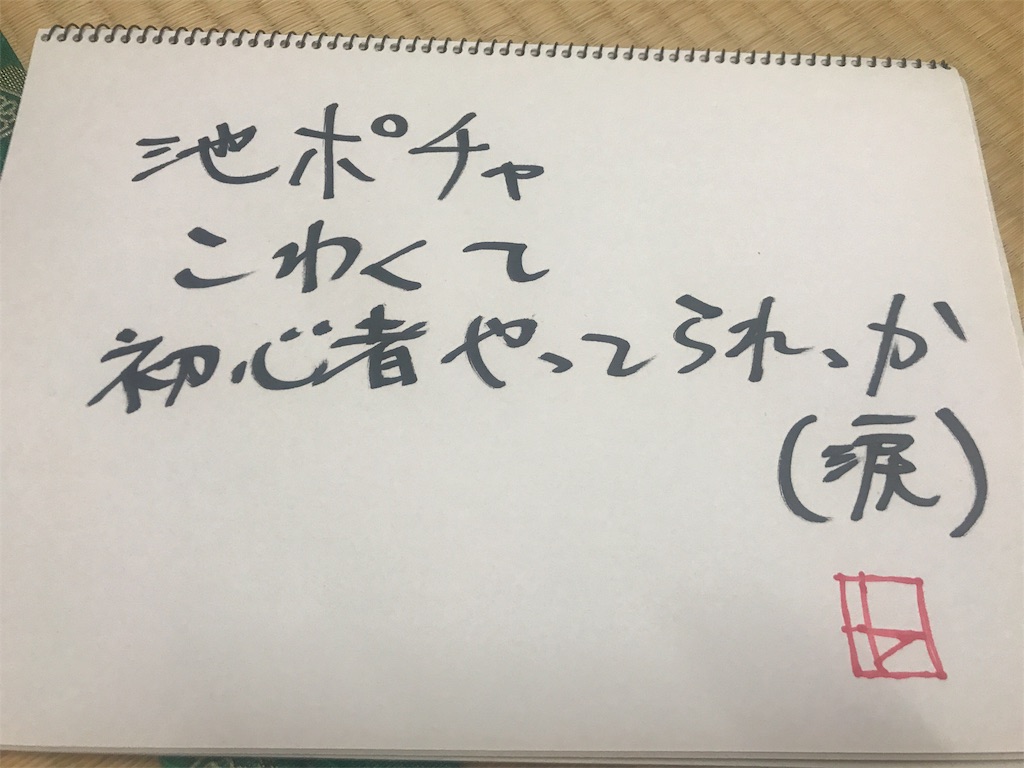 池ポチャ
こわくて
初心者やってられっか
(涙)